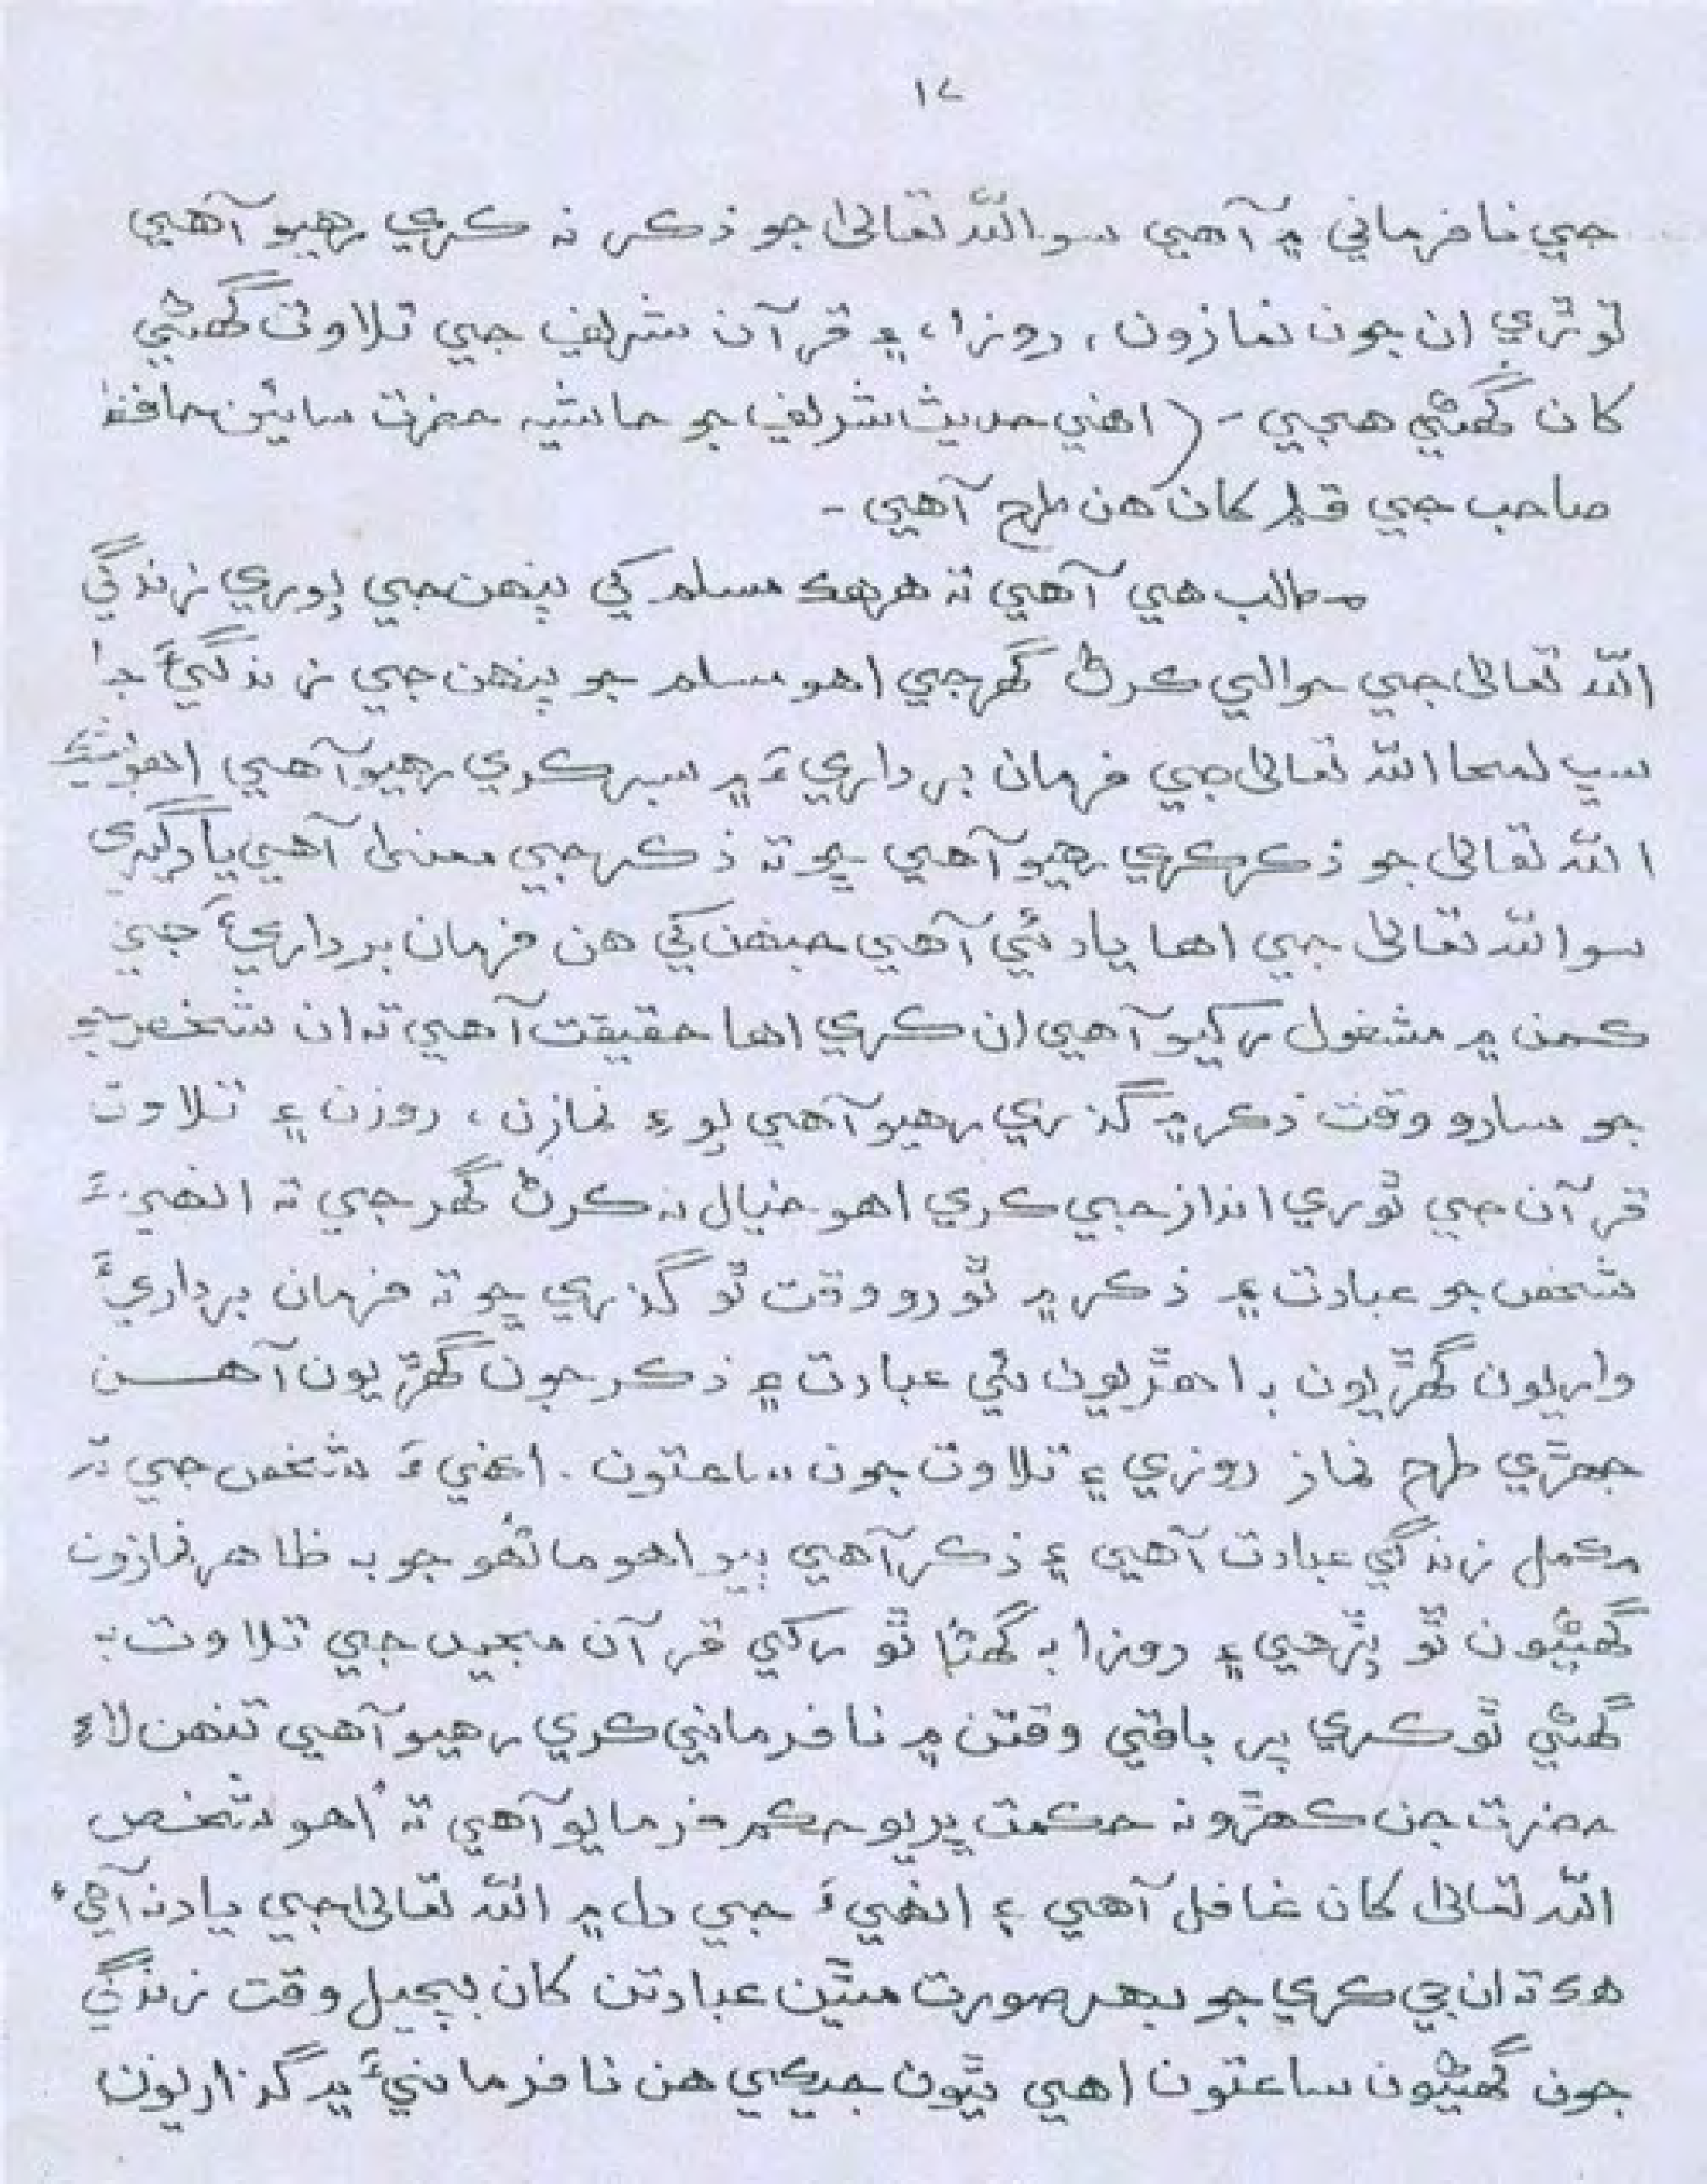 ١٧
جي نافرماني ۾ آهي سو الله تعاليٰ جو ذڪر نه ڪري رهيو آهي
توڙي ان جون نمازون، روزا، ۽ قرآن شريف جي تلاوت گھڻي
کان گھڻي هجي - (اهني حديث شريف جو حاشيه حضرت سائين حافظ
صاحب جي قلم کان هن طرح آهي -
مطلب هي آهي ته هر هڪ مسلم کي پنهن جي پوري زندگي
الله تعالى جي حوالي ڪرڻ گھرجي اهو مسلم جو پنهن جي زندگيءَ جا
سڀ لمحا الله تعالى جي فرمان برداريءَ ۾ سبر ڪري رهيو آهي اهو
الله تعالى جو ذڪر ڪري رهيو آهي ڇو ته ذڪر جي معنيٰ آهي يادگيري
سو الله تعالى جي اها ياد ئي آهي جنهن کي هن فرمان برداريءَ جي
ڪمن ۾ مشغول رکيو آهي ان ڪري اها حقيقت آهي ته ان شخص
جو سارو وقت ذڪر ۾ گذري رهيو آهي پوءِ نمازن، روزن ۽ تلاوت
قرآن جي ٿوري انداز جي ڪري اهو خيال نه ڪرڻ گھرجي ته انهيءَ
شخص جو عبادت ۽ ذڪر ۾ ٿورو وقت ٿو گذري ڇو ته فرمان برداريءَ
واريون گھڙيون به اهڙيون ئي عبادت ۾ ذڪر جون گھڙيون آهن
جهڙي طرح نماز روزي ۽ تلاوت جون ساعتون. اهنيءَ شخص جي ته
مڪمل زندگي عبادت آهي ۽ ذڪر آهي ٻيو اهو ماڻهو جو به ظاهر نمازون
گھڻيون ٿو پڙهي ۽ روزا به گھڻا ٿو رکي قرآن مجيد جي تلاوت به
گھڻي ٿو ڪري پر باقي وقتن ۾ نافرماني ڪري رهيو آهي تنهن لاءِ
حضرت جن ڪهڙو نه حڪمت ڀريو حڪم فرمايو آهي ته اهو شخص
الله تعالى کان غافل آهي ۽ انهيءَ جي دل ۾ الله تعالى جي ياد نه آهي
هڪ ته ان جي ڪري جو بهر صورت مٿين عبادتن کان بچيل وقت زندگي
جون گھڻيون ساعتون اهي ٿيون جيڪي هن نافرمانيءَ ۾ گذاريون